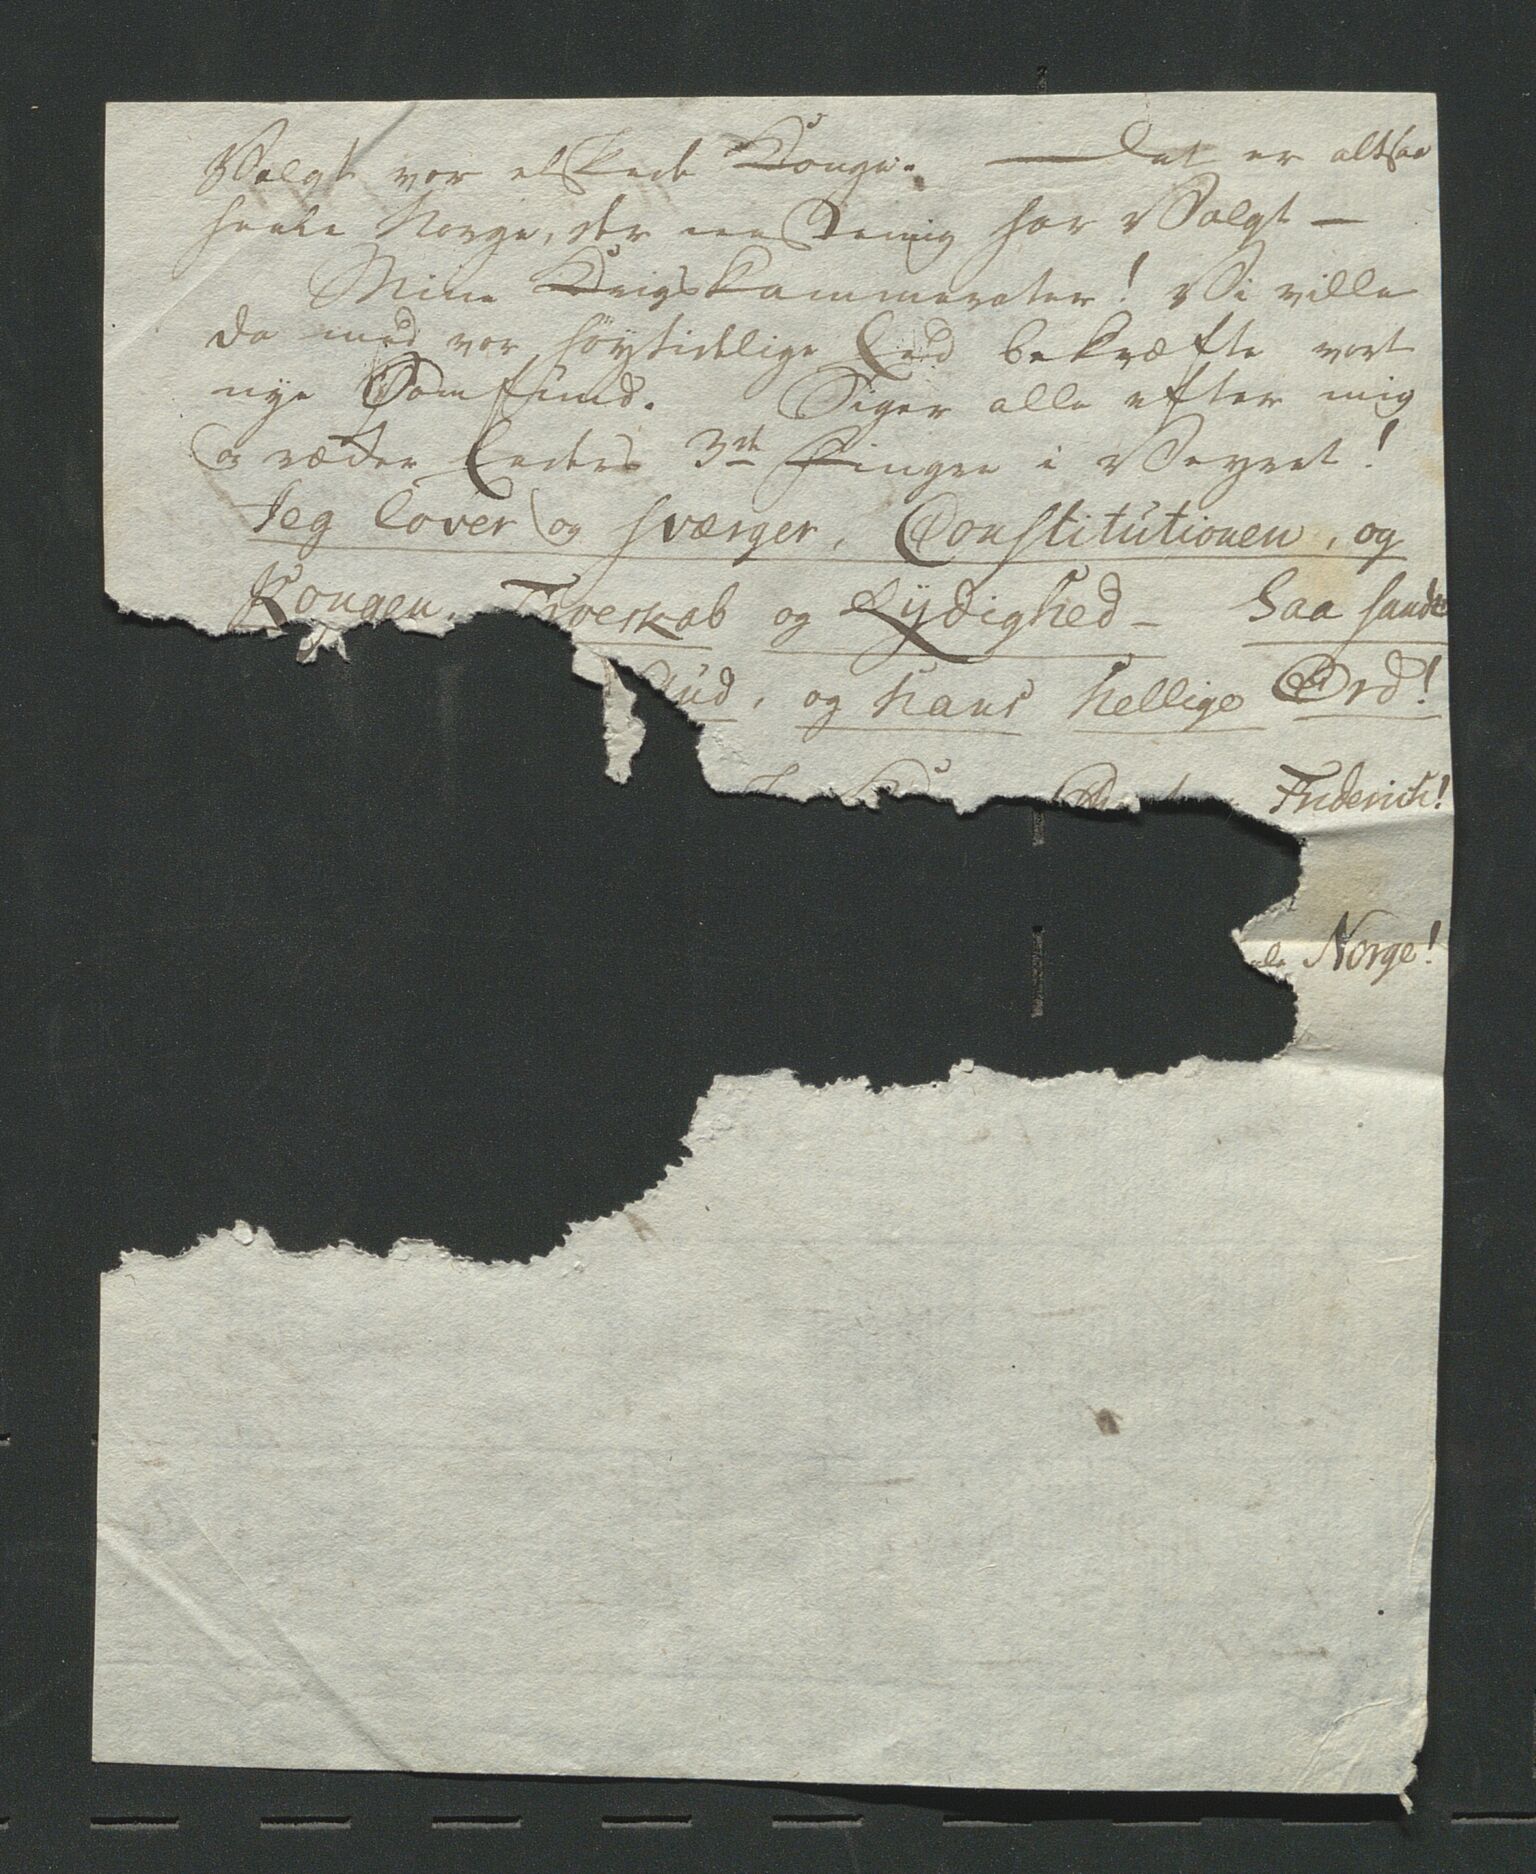 Valgt vor elskede Konge. — Det er altsaa
heele Norge, der eenstemig har Valgt —
Mine Krigskammerater! Vi ville
da med vor høytidelige Eed bekræfte vort
nye Samfund. Siger alle efter mig
og ræcker Eeders 3de Fingre i Veyret!
Jeg lover og sværger, Constitutionen, og
Kongen, Troeskab og Lydighed – Saa sandt
Gud, og hans hellige Ord!
Friderich!
Norge!